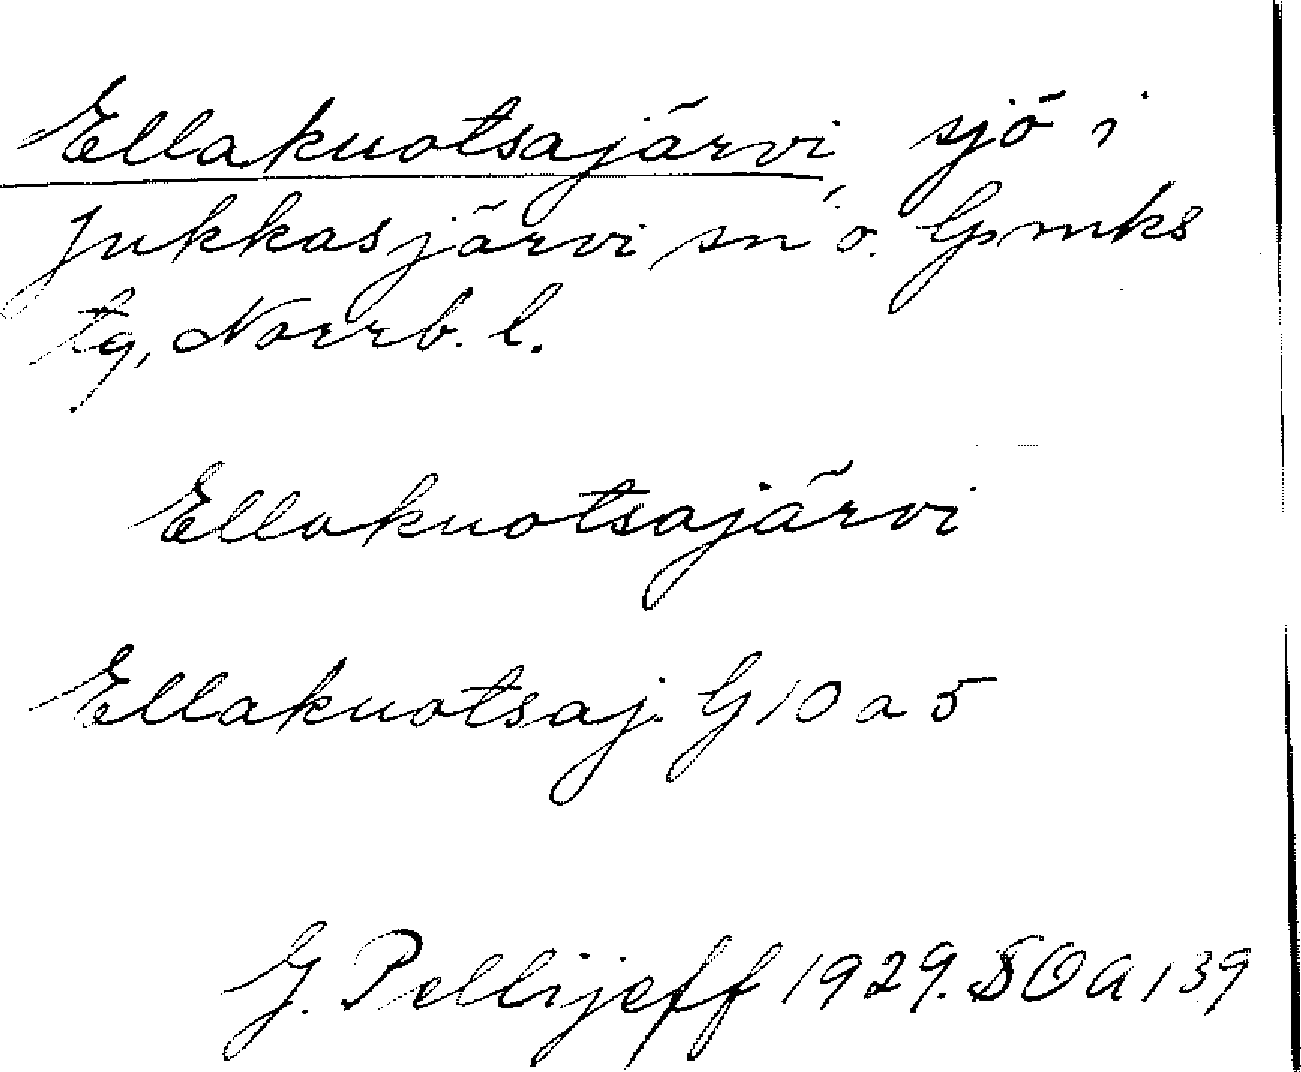 Ellakuotsajärvi, sjö i
Jukkasjärvi sn o. Gpmks
tg, Norrb. l.
Ellakuotsajärvi
Ellakuotsaj. G 10 a 5
G. Pellijeff 1929. SOA 139